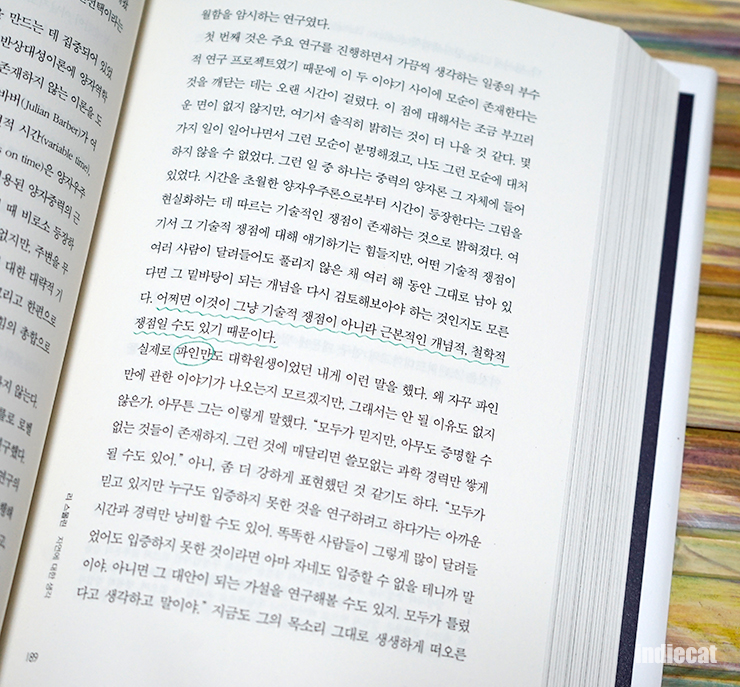 선택이라는
을 만드는 데 집중되어 있었
반상대성이론에 양자역학
존재하지 않는 이론을 도
바버(Julian Barber)가 여
적 시간(variable time),
s on time)은 양자우주
용된 양자중력의 근
때 비로소 등장하
없지만, 주변을 무
대한 대략적 기
그리고 한편으로
힘의 총합으로
하지 않는다.
로 로벨
구했다.
연구의
월함을 암시하는 연구였다.
첫 번째 것은 주요 연구를 진행하면서 가끔씩 생각하는 일종의 부수
적 연구 프로젝트였기 때문에 이 두 이야기 사이에 모순이 존재한다는
것을 깨닫는 데는 오랜 시간이 걸렸다. 이 점에 대해서는 조금 부끄러
운 면이 없지 않지만, 여기서 솔직히 밝히는 것이 더 나을 것 같다. 몇
가지 일이 일어나면서 그런 모순이 분명해졌고, 나도 그런 모순에 대처
하지 않을 수 없었다. 그런 일 중 하나는 중력의 양자론 그 자체에 들어
있었다. 시간을 초월한 양자우주론으로부터 시간이 등장한다는 그림을
현실화하는 데 따르는 기술적인 쟁점이 존재하는 것으로 밝혀졌다. 여
기서 그 기술적 쟁점에 대해 얘기하기는 힘들지만, 어떤 기술적 쟁점이
여러 사람이 달려들어도 풀리지 않은 채 여러 해 동안 그대로 남아 있
다면 그 밑바탕이 되는 개념을 다시 검토해보아야 하는 것인지도 모른
다. 어쩌면 이것이 그냥 기술적 쟁점이 아니라 근본적인 개념적, 철학적
쟁점일 수도 있기 때문이다.
실제로 파인만도 대학원생이었던 내게 이런 말을 했다. 왜 자꾸 파인
만에 관한 이야기가 나오는지 모르겠지만, 그래서는 안 될 이유도 없지
않은가. 아무튼 그는 이렇게 말했다. “모두가 믿지만, 아무도 증명할 수
없는 것들이 존재하지. 그런 것에 매달리면 쓸모없는 과학 경력만 쌓게
될 수도 있어.” 아니, 좀 더 강하게 표현했던 것 같기도 하다. “모두가
믿고 있지만 누구도 입증하지 못한 것을 연구하려고 하다가는 아까운
시간과 경력만 낭비할 수도 있어. 똑똑한 사람들이 그렇게 많이 달려들
었어도 입증하지 못한 것이라면 아마 자네도 입증할 수 없을 테니까 말
이야. 아니면 그 대안이 되는 가설을 연구해볼 수도 있지. 모두가 틀렸
다고 생각하고 말이야.” 지금도 그의 목소리 그대로 생생하게 떠오른
리 스몰린 자연에 대한 생각
189
indiecat